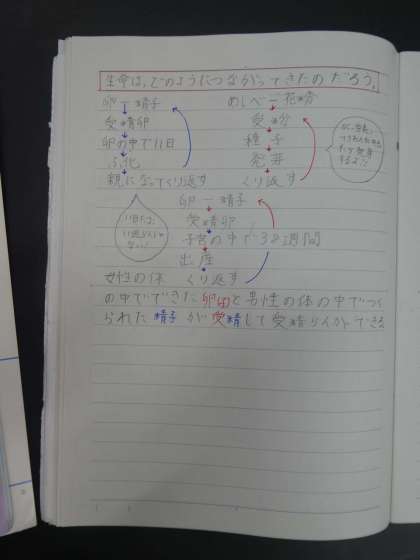 生命は、どのようにつながってきたのだろう。
卵ー精子
受精卵
卵の中で11日
ふ化
親になってくり返す
めしべー花粉
受粉
種子
発芽
くり返す
卵ー精子
受精卵
子宮の中で38週間
出産
くり返す
11日だと、
女性の体
の中でできた卵(らん)と男性の体の中でつく
られた精子が受精して受精らんができる